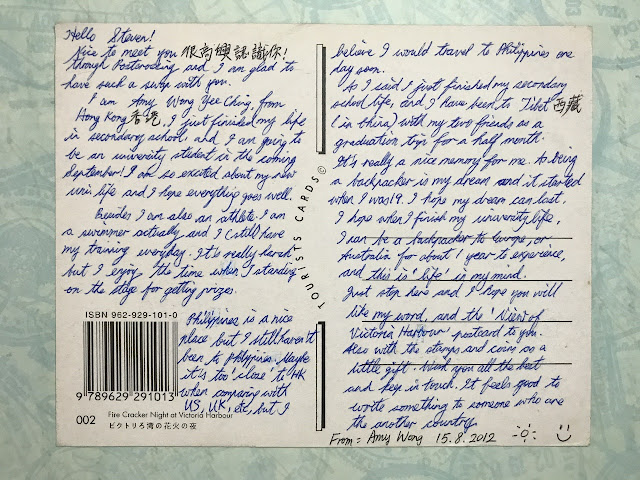 Hello Steven!
Nice to meet you 很高興認識你!
though Postcrossing and I am glad to
have such a swap with you.
I am Amy Wong Yee Ching, from
Hong Kong 香港, I just finished my life
in secondary school, and I am going to
be an university student in the coming
September! I am so excited about my new
uni life and I hope everything goes well.
Besides I am also an athlete. I am
a swimmer actually and I still have
my training everyday. It's really hard
but I enjoy the time when I standing
on the stage for getting prizes.
Philippines is a nice
place but I still haven't
been to Philippines. Maybe
it is too 'close' to HK
when comparing with
US, UK, etc, but I
ISBN 962-929-101-0
9 789629 291013
002
Fire Cracker Night at Victoria Harbour
ビクトリろ湾の花火の夜
TOURISTS CARDS©
believe I would travel to Philippines one
day soon.
As I said I just finished my secondary
school life, and I have been to Tibet 西藏
(in China) with my two friends as a
graduation trip for a half month.
It's really a nice memory for me. As being
a backpacker is my dream and it started
when I was 19. I hope my dream can last.
I hope when I finish my university life,
I can be a backpacker to Europe, or
Australia for about 1 year to experience,
and this is 'life' in my mind.
Just stop here and I hope you will
like my word, and the 'View of
Victoria Harbour' postcard to you.
Also with the stamps and coins as a
little gift. Wish you all the best
and keep in touch. It feels good to
write something to someone who are
the another country.
From: Amy Wong 15.8.2012